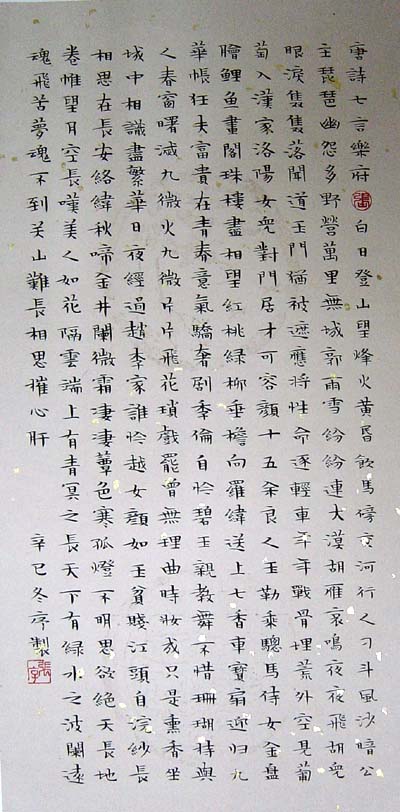 唐詩七言樂府 白日登山望烽火黃昏飲馬傍交河行人刁斗風沙暗公
主琵琶幽怨多野營萬里無城郭雨雪紛紛連大漠胡雁哀鳴夜夜飛胡兒
眼淚雙雙落聞道玉門猶被遮應將性命逐輕車年年戰骨埋荒外空見葡
萄入漢家洛陽女兒對門居才可容顏十五余良人玉勒乘驄馬侍女金盤
膾鯉魚畫閣珠樓盡相望紅桃綠柳垂檐向羅緯送上七香車寶扇迎归九
華帳狂夫富貴在青春意氣驕奢劇季倫自怜碧玉親教舞不惜珊瑚持與
人春窗曙滅九微火九微片片飛花瑣戲罷曾無理曲時妝成只是熏香坐
城中相識盡繁華日夜經過趙李家誰怜越女顏如玉貧賤江頭自浣紗長
相思在長安絡緯秋啼金井闌微霜淒淒簟色寒孤燈不明思欲絕天長地
卷帷望月空長嘆美人如花隔雲端上有青冥之長天下有綠水之波闌遠
魂飛苦夢魂不到关山難長相思摧心肝 辛巳冬亭製